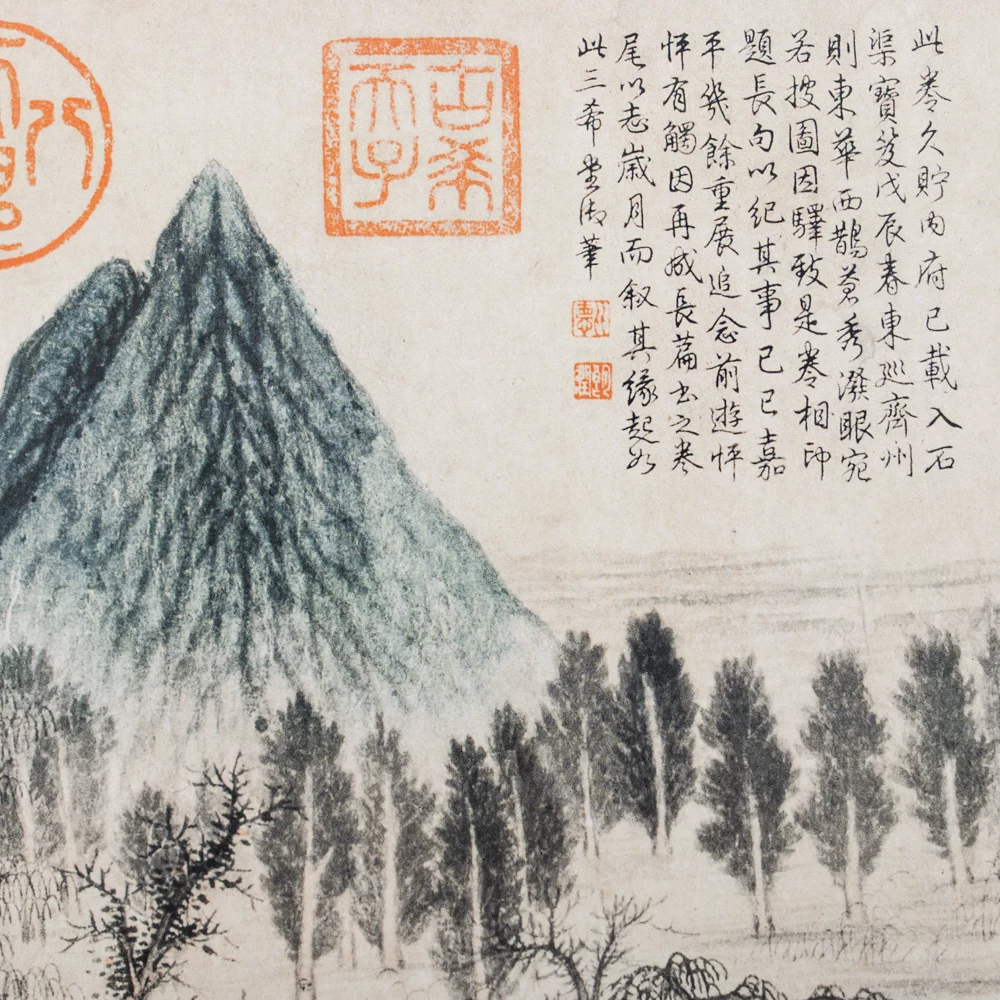 此卷久貯內府已載入石
渠寶笈戊辰春東巡齊州
則東華西鵲蒼秀潑眼宛
若披圖因驛致是卷相印
題長句以紀其事己巳嘉
平幾餘重展追念前遊怦
怦有觸因再成長篇書之卷
尾以志歲月而叙其緣起如
此三希堂御筆
古希
天子